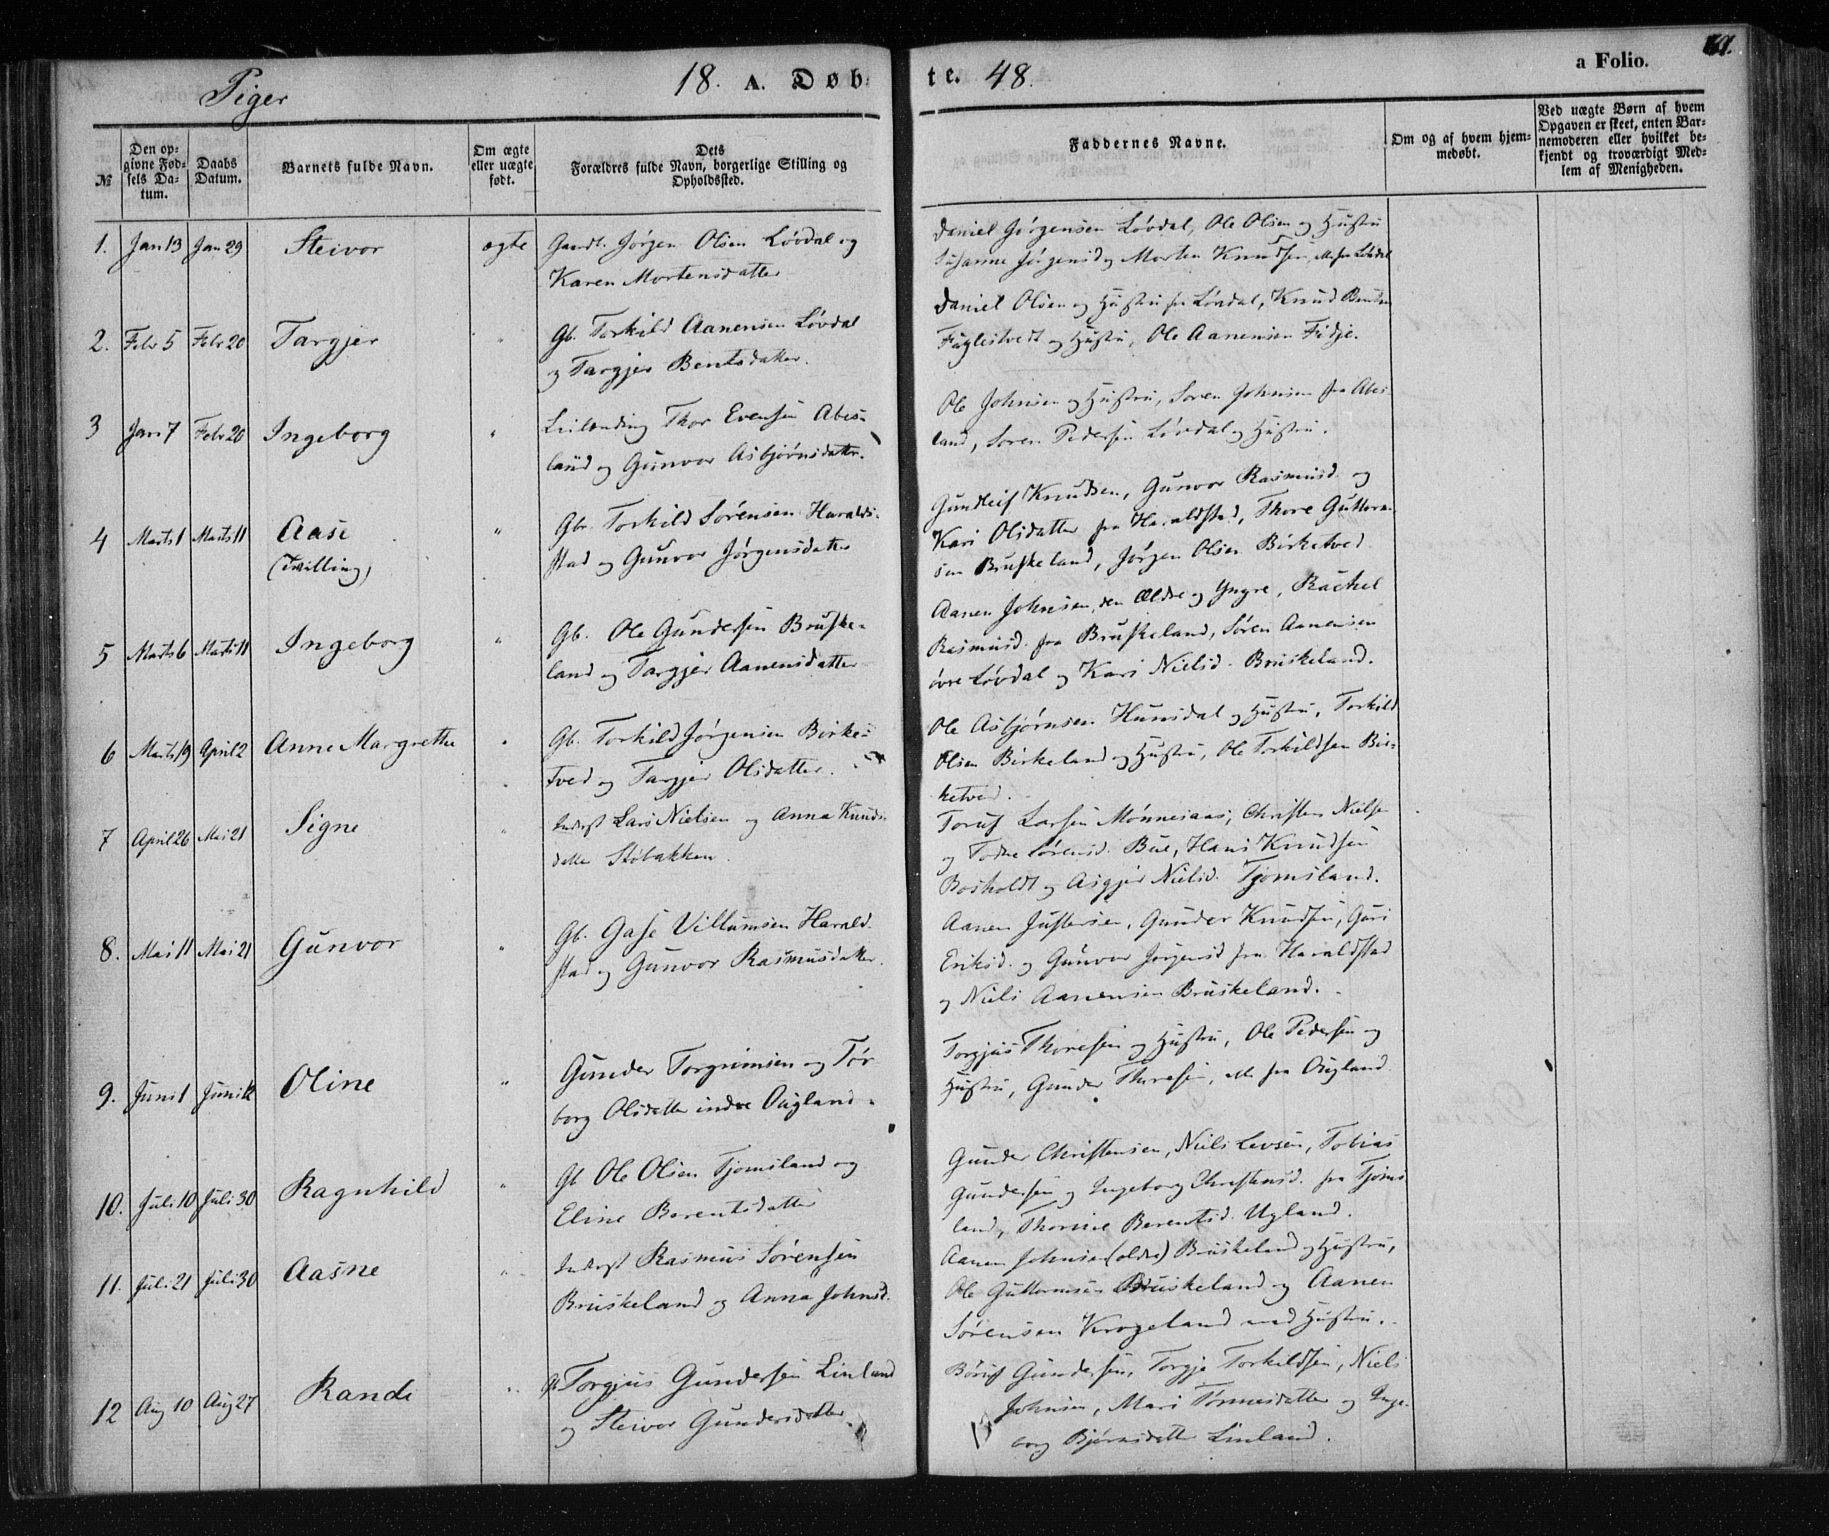 Piger
18. A. Døb-
te. 48.
a Folio.
№
Den op-
givne Fød-
sels Da-
tum.
Daabs
Datum.
Barnets fulde Navn.
Om ægte
eller uægte
født.
Dets
Forældres fulde Navn, borgerlige Stilling og
Opholdssted.
Faddernes Navne.
Om og af hvem hjem-
medøbt.
Ved uægte Børn af hvem
Opgaven er skeet, enten Bar-
nemoderen eller hvilket be-
kjendt og troværdigt Med-
lem af Menigheden.
1. Jan 13 Jan 29 Steivor ægte Gaardb. Jørgen Olsen Lövdal og
Karen Mortensdatter
Daniel Jørgensen Lövdal, Ole Olsen og Hustru
Susanne Jørgensd og Morten Knudsen, A. fra Lövdal
2. Febr 5 Febr 20 Targjer " Gb. Torkild Aanensen Lövdal
og Targjer Bentsdatter.
Daniel Olsen og Hustru fra Lövdal, Knud Bentsen
Fuglestvedt og Hustru, Ole Aanensen Fidje.
3 Jan 7 Febr 20 Ingeborg " Leilænding Thor Evensen Abes-
land og Gunvor Asbjörnsdatter.
Ole Johnsen og Hustru, Soren Johnsen fra Abes-
land, Soren Pedersen Lövdal og Hustru.
4 Marts 1 Marts 11 Aase " Gbr. Torkild Sörensen Haralds-
(Tvilling) stad og Gunvor Jørgensdatter
Gundleif Knudsen, Gunvor Rasmusd. og
Kari Olsdatter fra Haraldstad, Thore Guttorm-
sen Bruskeland, Jørgen Olsen Birketved
5 Marts 6 Marts 11 Ingeborg " Gb. Ole Gundersen Bruske-
land og Targjer Aanensdatter
Aanen Johnsen, den Ældre og Yngre, Rachel
Rasmusd. fra Bruskeland, Sören Aanensen
övre Lövdal og Kari Nielsd. Bruskeland.
6 Marts 19 April 2 Anne Margrethe " Gb. Torkild Jørgensen Birke-
tved og Targjer Olsdatter.
Ole Asbjörnsen Hunsdal og Hustru, Torkild
Olsen Birkeland og Hustru, Ole Torkildsen Bir-
ketved.
7 April 26 Mai 21 Signe " Inderst Lars Nielsen og Anna Knuds-
datter Stöbakken.
Toruf Larsen Mönnesaas, Christen Nielsen
og Todne Sörensd. Bue, Hans Knudsen
Bosholdt og Asgjer Nielsd. Tjomsland.
8. Mai 11 Mai 21 Gunvor " Gb. Gase Villumsen Harald-
stad og Gunvor Rasmusdatter.
Aanen Justensen, Gunder Knudsen, Guri
Eriksd. og Gunvor Jørgensd fra Haraldstad
og Niels Aanensen Bruskeland.
9. Juni 1 Juni 12 Oline " Gunder Torgrimsen og Tor-
borg Olsdatter indre Augland.
Torgjus Thoresen og Hustru, Ole Pedersen og
Hustru, Gunder Thoresen, A. fra Augland.
10. Juli 10 Juli 30 Ragnhild " Gb Ole Olsen Tjomsland og
Eline Berentsdatter
Gunder Christensen, Niels Levsen, Tobias
Gundersen og Ingeborg Christensd. fra Tjoms-
land, Thorine Berentsd. Ugland.
11. Juli 21 Juli 30 Aasne " Inderst Rasmus Sörensen
Bruskeland og Anna Johnsd.
Aanen Johnsen (ældre) Bruskeland og Hustru,
Ole Guttormsen Bruskeland og Aanen
Sörensen Krogeland med Hustru.
12 Aug 10 Aug 27 Rande " Gb Torgjus Gundersen Linland
og Steivor Gundersdatter.
Börus Gundersen, Torgje Torkildsen, Niels
Johnsen, Mari Tönnesdatter og Inge-
borg Bjørnsdatter Linland.